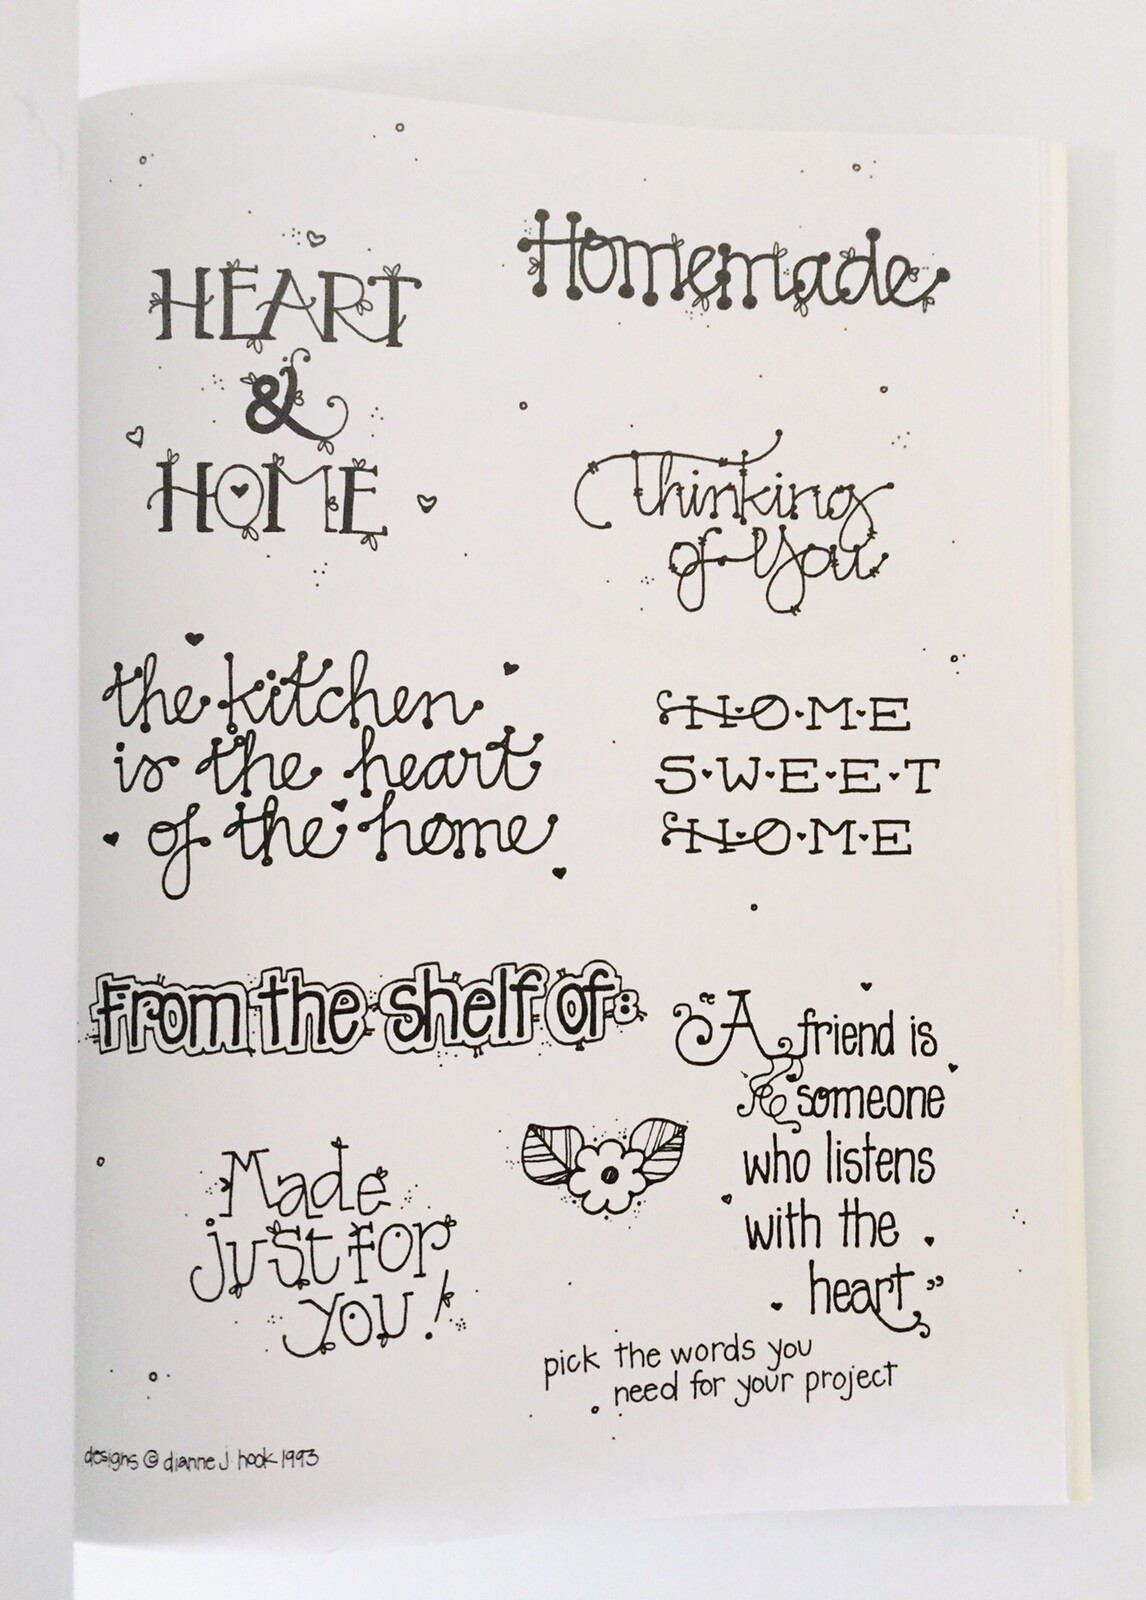 HEART
&
HOME
Homemade
Thinking
of You
the kitchen
is the heart
of the home
H·O·M·E
S·W·E·E·T
H·O·M·E
From the shelf of:
"A friend is
someone
who listens
with the
heart."
Made
just for
you!
pick the words you
need for your project
designs © dianne J hook 1993